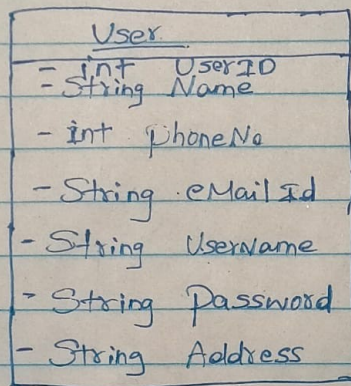 User
- int UserID
- String Name
- int phoneNo
- String eMailId
- String UserName
- String Password
- String Address